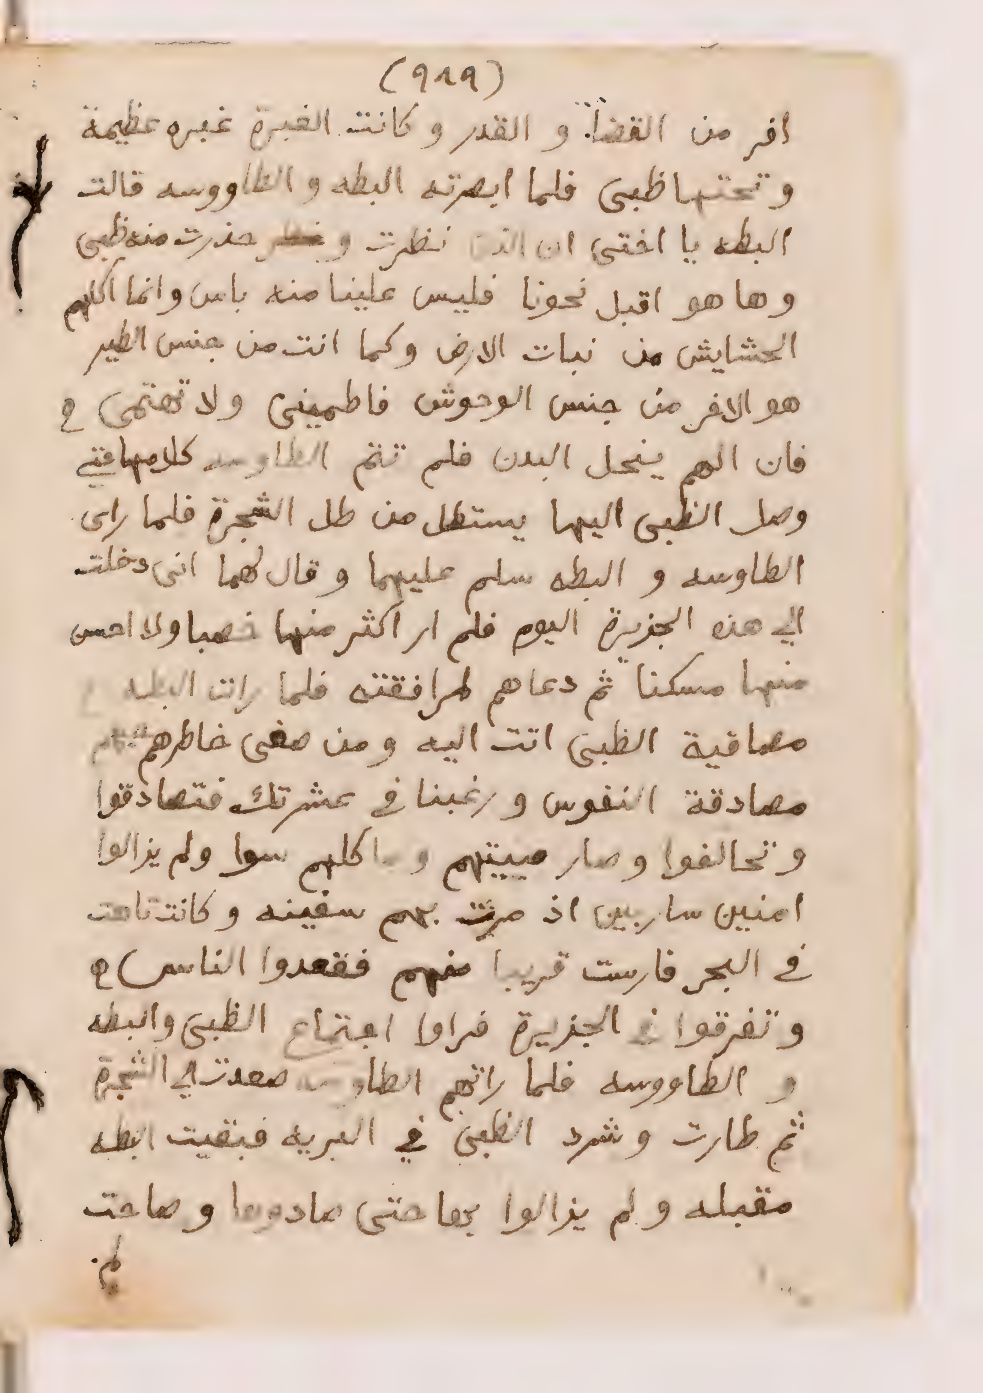 (٩١٩)
افر من القضاء و القدر و كانت الغبرة غبره عظيمة
و تحتها ظبى فلما ابصرته البطه و الطاووسه قالت
البطه يا اختى ان الذى نظرت و حذرت منه ظبى
و ها هو اقبل نحونا فليس علينا منه باس وانما اكلهم
الحشايش من نبات الارض وكما انت من جنس الطير
هو الافر من جنس الوحوش فاطمينى ولا تهتمى
فان الهم ينحل البدن فلم تتم الطاوسه كلامها حتى
وصل الظبى اليها يستظل من ظل الشجرة فلما راى
الطاوسه و البطه سلم عليهما و قال لهما انى دخلت
الى هذه الجزيرة اليوم فلم ار اكثر منها خصبا ولا احسن
منها مسكنا ثم دعاهم لمرافقته فلما رات البطه
مصاقية الظبى اتت اليه و من صغى خاطرهم
مصادقة النفوس و رغبنا فى عشرتك فتصادقوا
و تحالفوا و صار مبيتهم و ماكلهم سوا ولم يزالوا
امنين ساربين اذ مرت بهم سفينه و كانت تاهت
فى البحر فارست قريبا منهم فقعدوا الناس
و تفرقوا فى الجزيرة فراوا اجتماع الظبى والبطه
و الطاووسه فلما راتهم الطاوسه صعدت الى الشجرة
ثم طارت و شرد الظبى في البريه فبقيت البطه
مقبله و لم يزالوا بها حتى صادوها و صاحت
لم